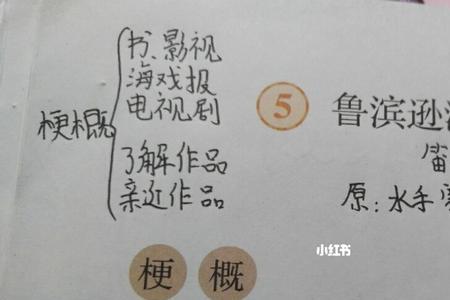 书、影视
海戏报
电视剧
梗概
了解作品
亲近作品
5 鲁滨逊
笛
原：水手
小红书
梗 概